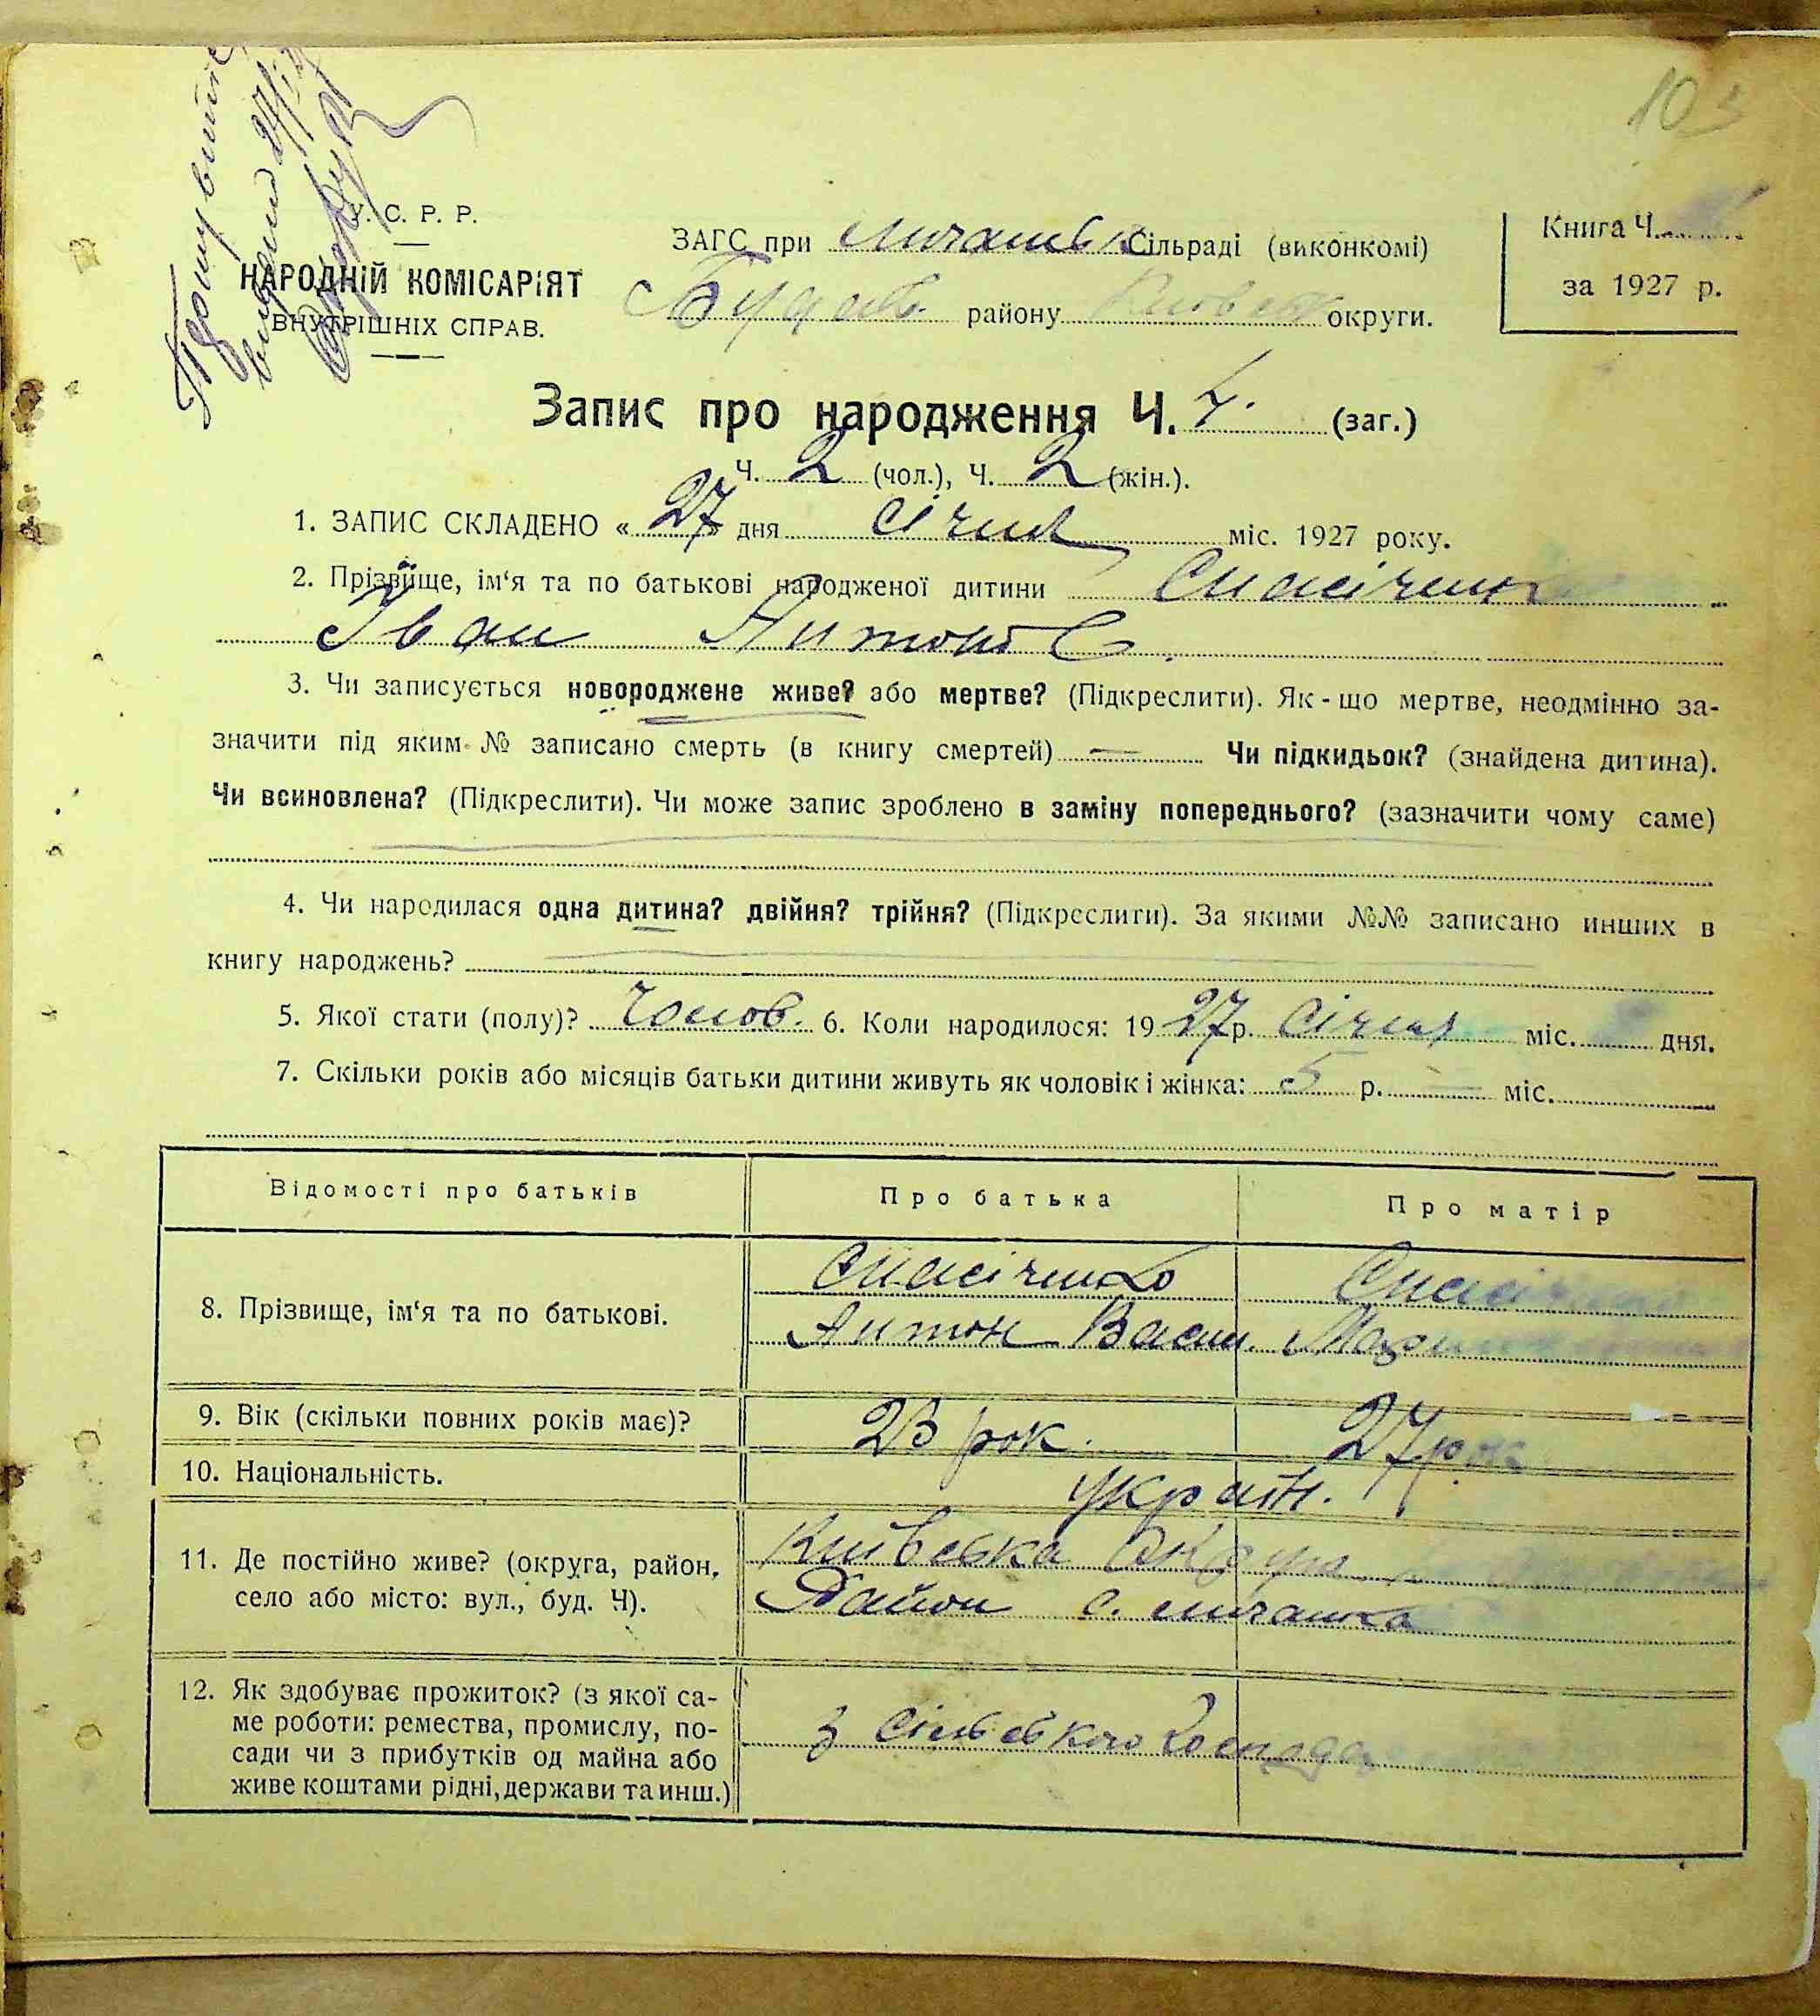 103
У. С. Р. Р.
НАРОДНІЙ КОМІСАРІЯТ
ВНУТРІШНІХ СПРАВ.
ЗАГС при Личанськ Сільраді (виконкомі)
району округи.
Книга Ч.
за 1927 р.
Запис про народження Ч. 4. (заг.)
Ч. 2 (чол.), Ч. 2 (жін.).
1. ЗАПИС СКЛАДЕНО « 27 » дня Січня міс. 1927 року.
2. Прізвище, ім‘я та по батькові народженої дитини
Іван Антонов.
3. Чи записується новороджене живе? або мертве? (Підкреслити). Як-що мертве, неодмінно за-
значити під яким № записано смерть (в книгу смертей) — Чи підкидьок? (знайдена дитина).
Чи всиновлена? (Підкреслити). Чи може запис зроблено в заміну попереднього? (зазначити чому саме)
4. Чи народилася одна дитина? двійня? трійня? (Підкреслити). За якими №№ записано инших в
книгу народжень?
5. Якої стати (полу)? Чолов. 6. Коли народилося: 19 27 р. Січня міс. дня.
7. Скільки років або місяців батьки дитини живуть як чоловік і жінка: 5 р. — міс.
Відомості про батьків Про батька Про матір
8. Прізвище, ім‘я та по батькові.
Антон Васил.
9. Вік (скільки повних років має)? 23 рок. 27 рок
10. Національність. Україн.
11. Де постійно живе? (округа, район, Київська Округа
село або місто: вул., буд. Ч). Район с. Личанка
12. Як здобуває прожиток? (з якої са-
ме роботи: ремества, промислу, по-
сади чи з прибутків од майна або
живе коштами рідні, держави та инш.)
з сільського